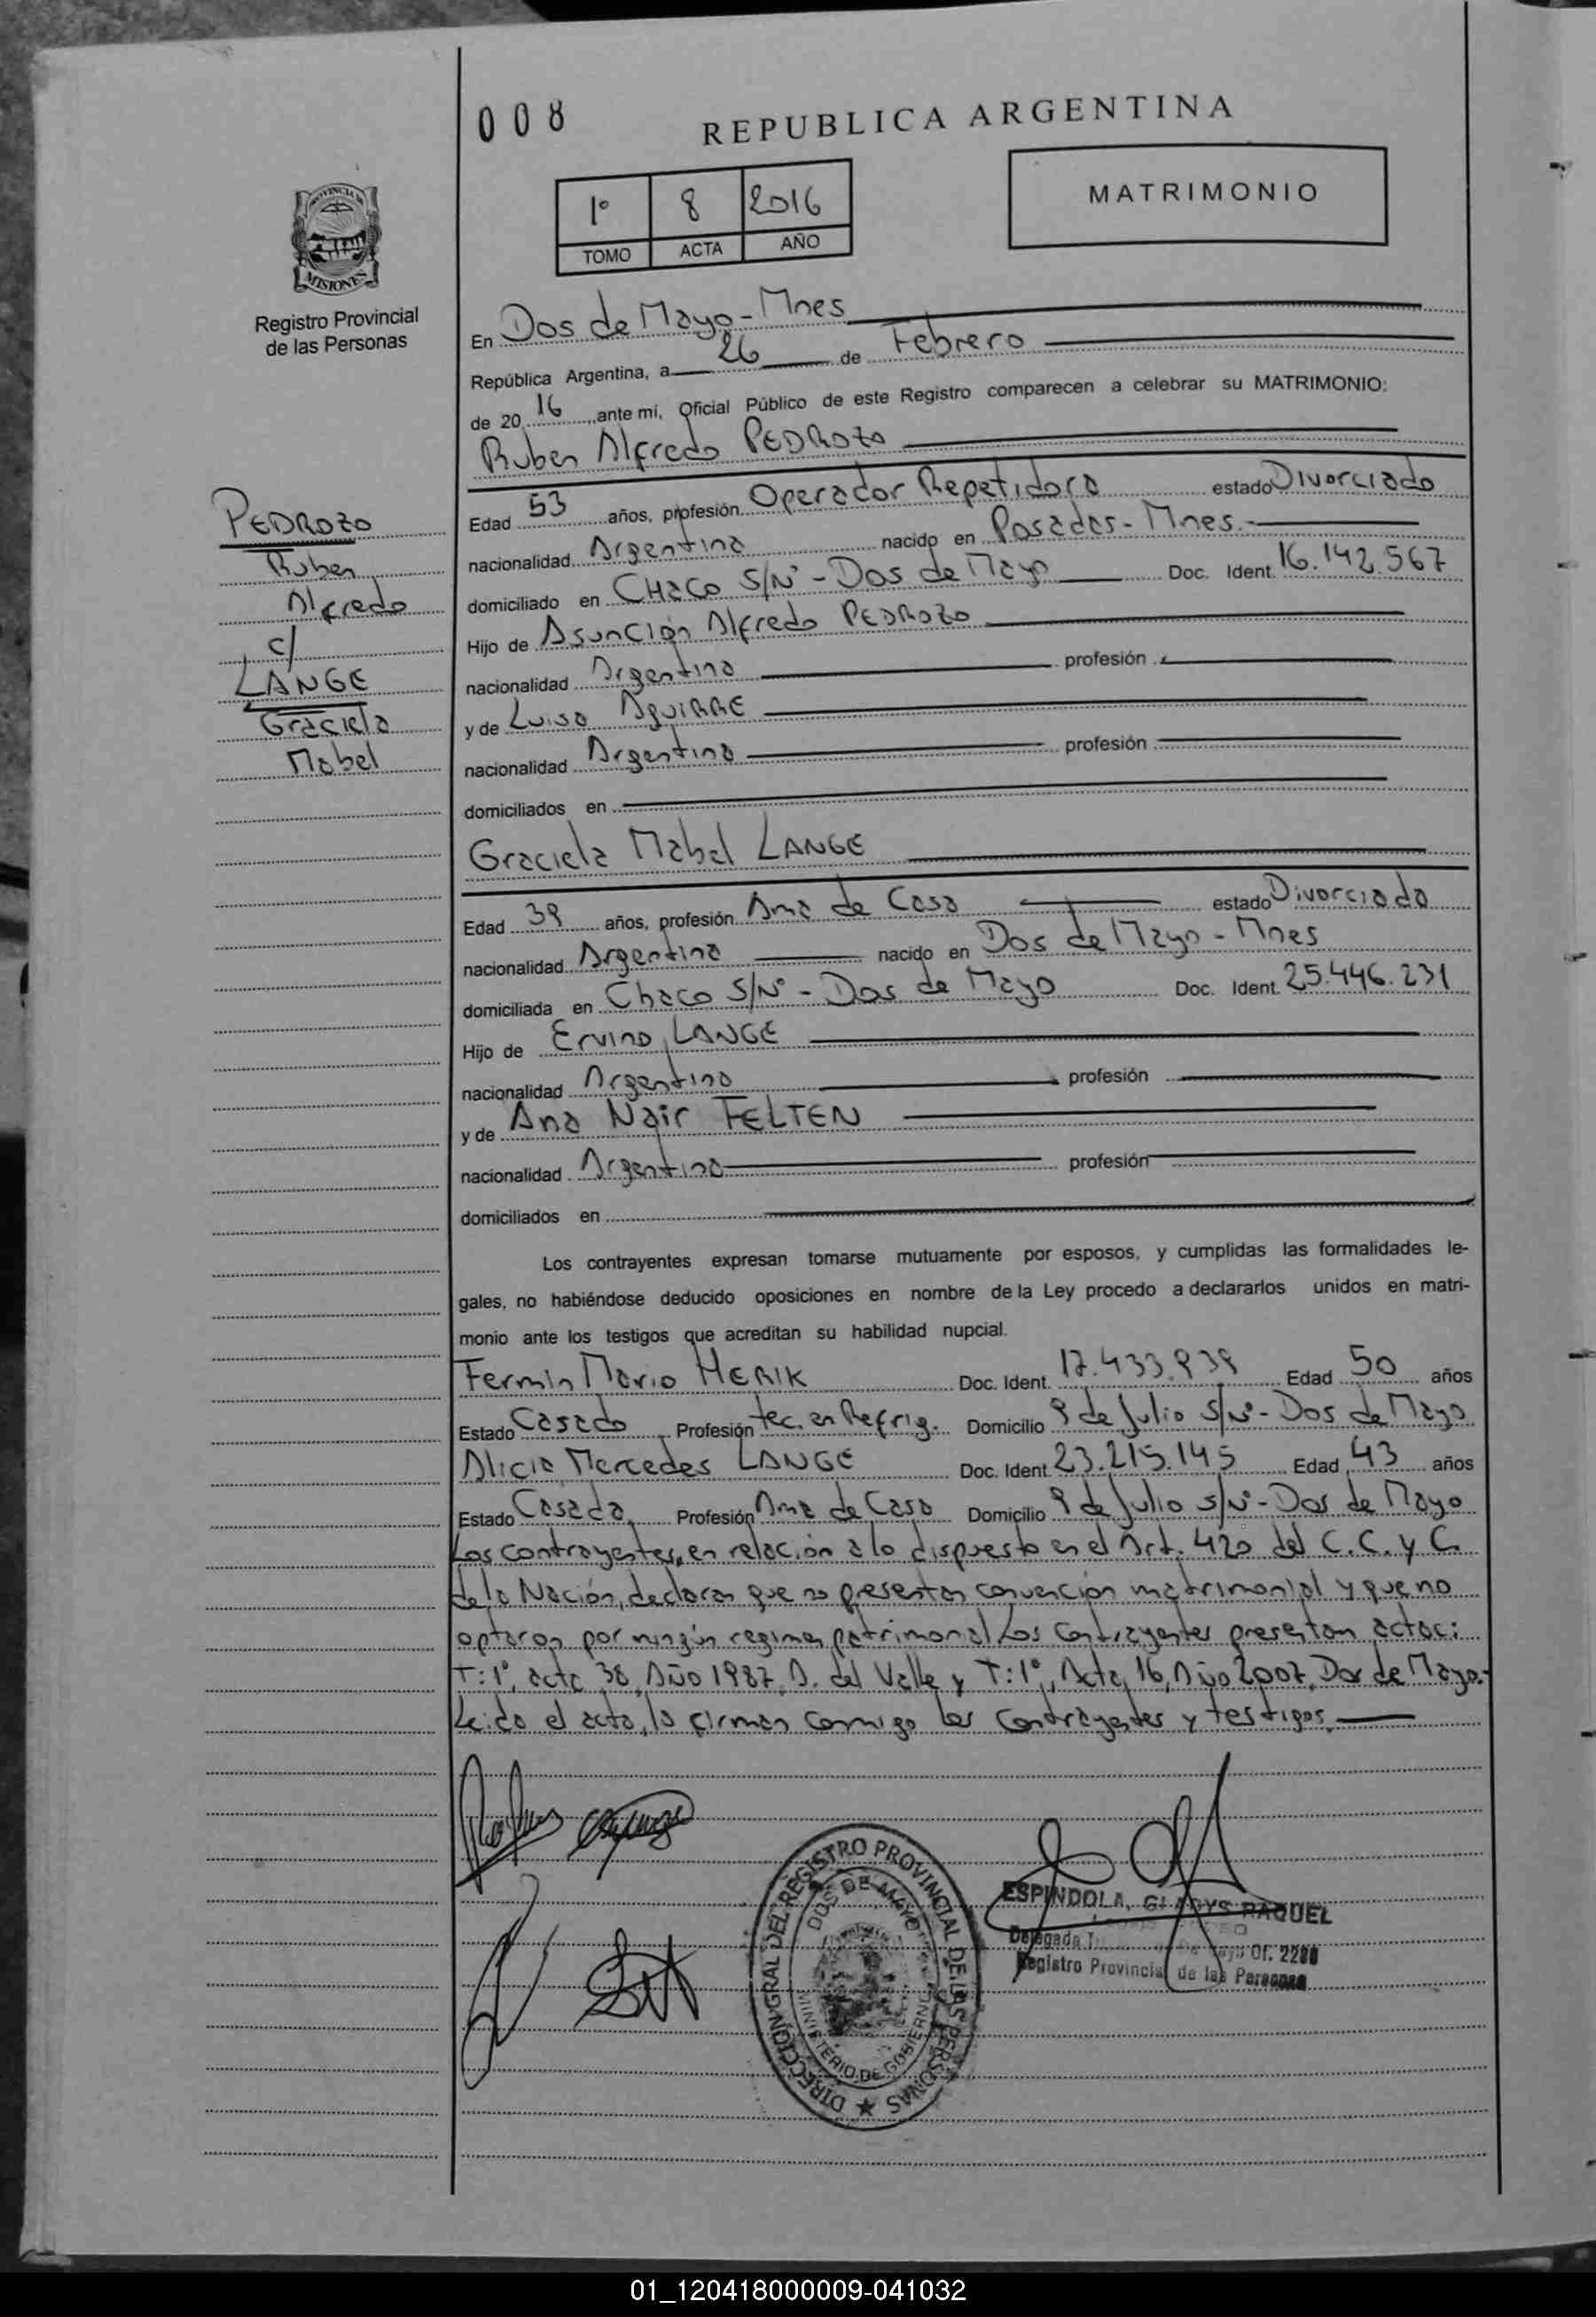 008
REPUBLICA ARGENTINA
1° 8 2016
TOMO ACTA AÑO
MATRIMONIO
PROVINCIA DE
MISIONES
Registro Provincial
de las Personas
En Dos de Mayo - Mnes
República Argentina, a 26 de Febrero
de 2016 ante mí, Oficial Público de este Registro comparecen a celebrar su MATRIMONIO:
Ruben Alfredo PEDROZO
PEDROZO
Ruben
Alfredo
c/
LANGE
Graciela
Mabel
Edad 53 años, profesión Operador Repetidora estado Divorciado
nacionalidad Argentina nacido en Posadas - Mnes.
domiciliado en CHaco S/N° - Dos de Mayo Doc. Ident. 16.142.567
Hijo de Asunción Alfredo PEDROZO
nacionalidad Argentina profesión
y de Luisa AguiRRE
nacionalidad Argentina profesión
domiciliados en
Graciela Mabel LANGE
Edad 39 años, profesión Ama de Casa estado Divorciada
nacionalidad Argentina nacido en Dos de Mayo - Mnes
domiciliada en Chaco S/N° - Dos de Mayo Doc. Ident. 25.446.231
Hijo de Ervino LANGE
nacionalidad Argentino profesión
y de Ana Nair FELTEN
nacionalidad Argentina profesión
domiciliados en
Los contrayentes expresan tomarse mutuamente por esposos, y cumplidas las formalidades le-
gales, no habiéndose deducido oposiciones en nombre de la Ley procedo a declararlos unidos en matri-
monio ante los testigos que acreditan su habilidad nupcial.
Fermin Mario HERIK Doc. Ident. 17.433.939 Edad 50 años
Estado Casado Profesión tec. en Refrig. Domicilio 9 de Julio S/N° - Dos de Mayo
Alicia Mercedes LANGE Doc. Ident. 23.215.145 Edad 43 años
Estado Casada Profesión Ama de Casa Domicilio 9 de Julio s/N° - Dos de Mayo
Los contrayentes, en relación a lo dispuesto en el Art. 420 del C.C. y C.
de la Nación, declaran que no presentan convención matrimonial y que no
optaron por ningún regimen patrimonial. Los contrayentes presentan actas:
T: 1°, acta 38, Año 1987, A. del Valle y T: 1°, Acta 16, Año 2007, Dos de Mayo.-
Leida el acta, la firman conmigo los contrayentes y testigos.
DIRECCION GRAL DEL REGISTRO PROVINCIAL DE LAS PERSONAS
DOS DE MAYO
MINISTERIO DE GOBIERNO
ESPINDOLA, GLADYS RAQUEL
Delegada Mayo Of. 2298
Registro Provincial de las Personas
01_120418000009-041032